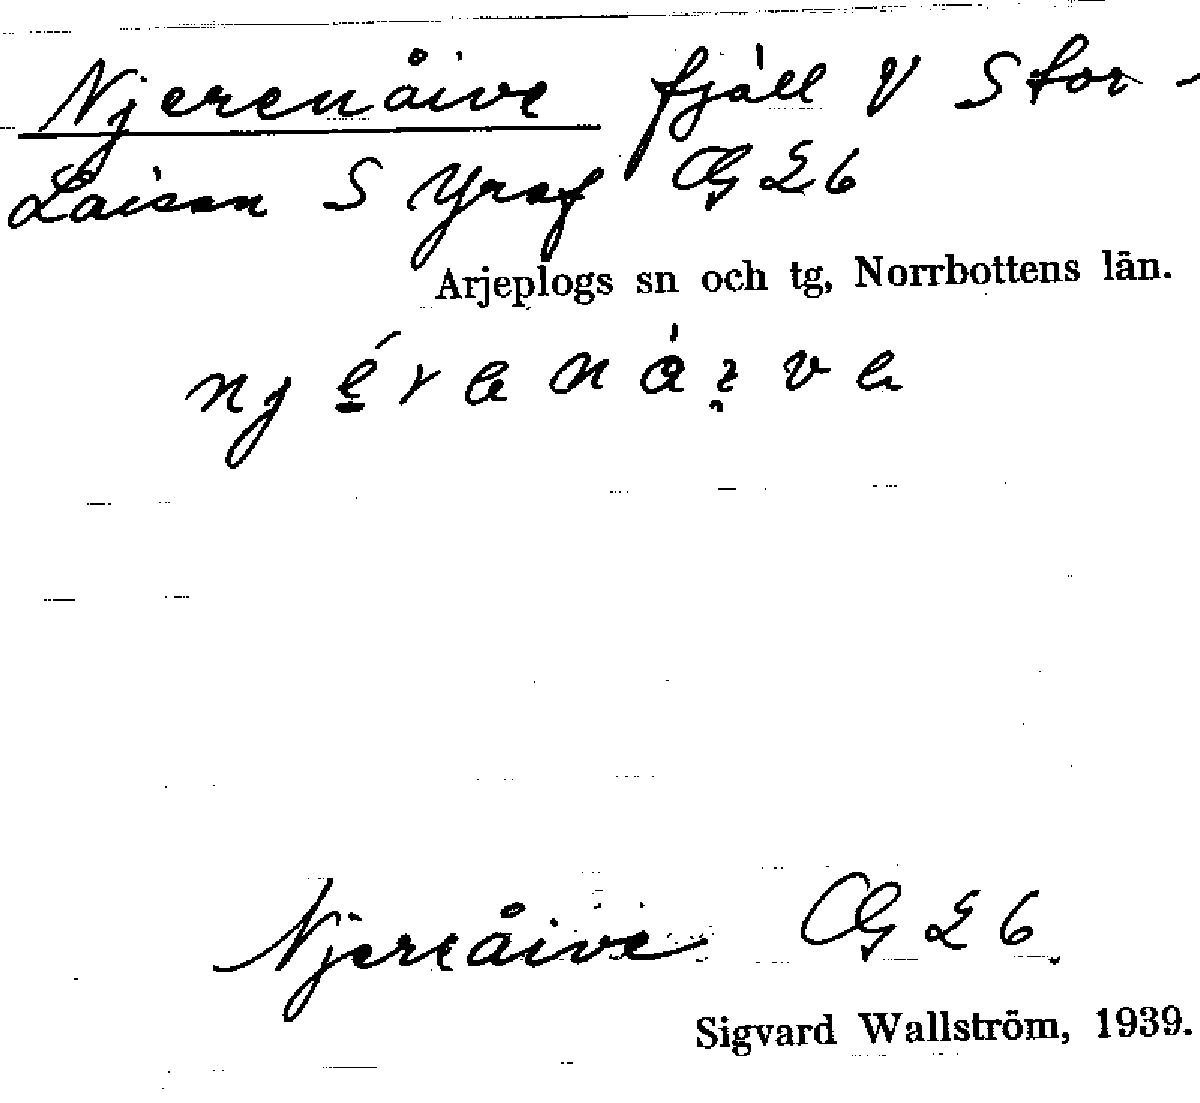 Njerenåive fjäll V Stor-
Laisan S Yraf CG Σ 6
Arjeplogs sn och tg, Norrbottens län.
Njereåive CG Σ 6
Sigvard Wallström, 1939.